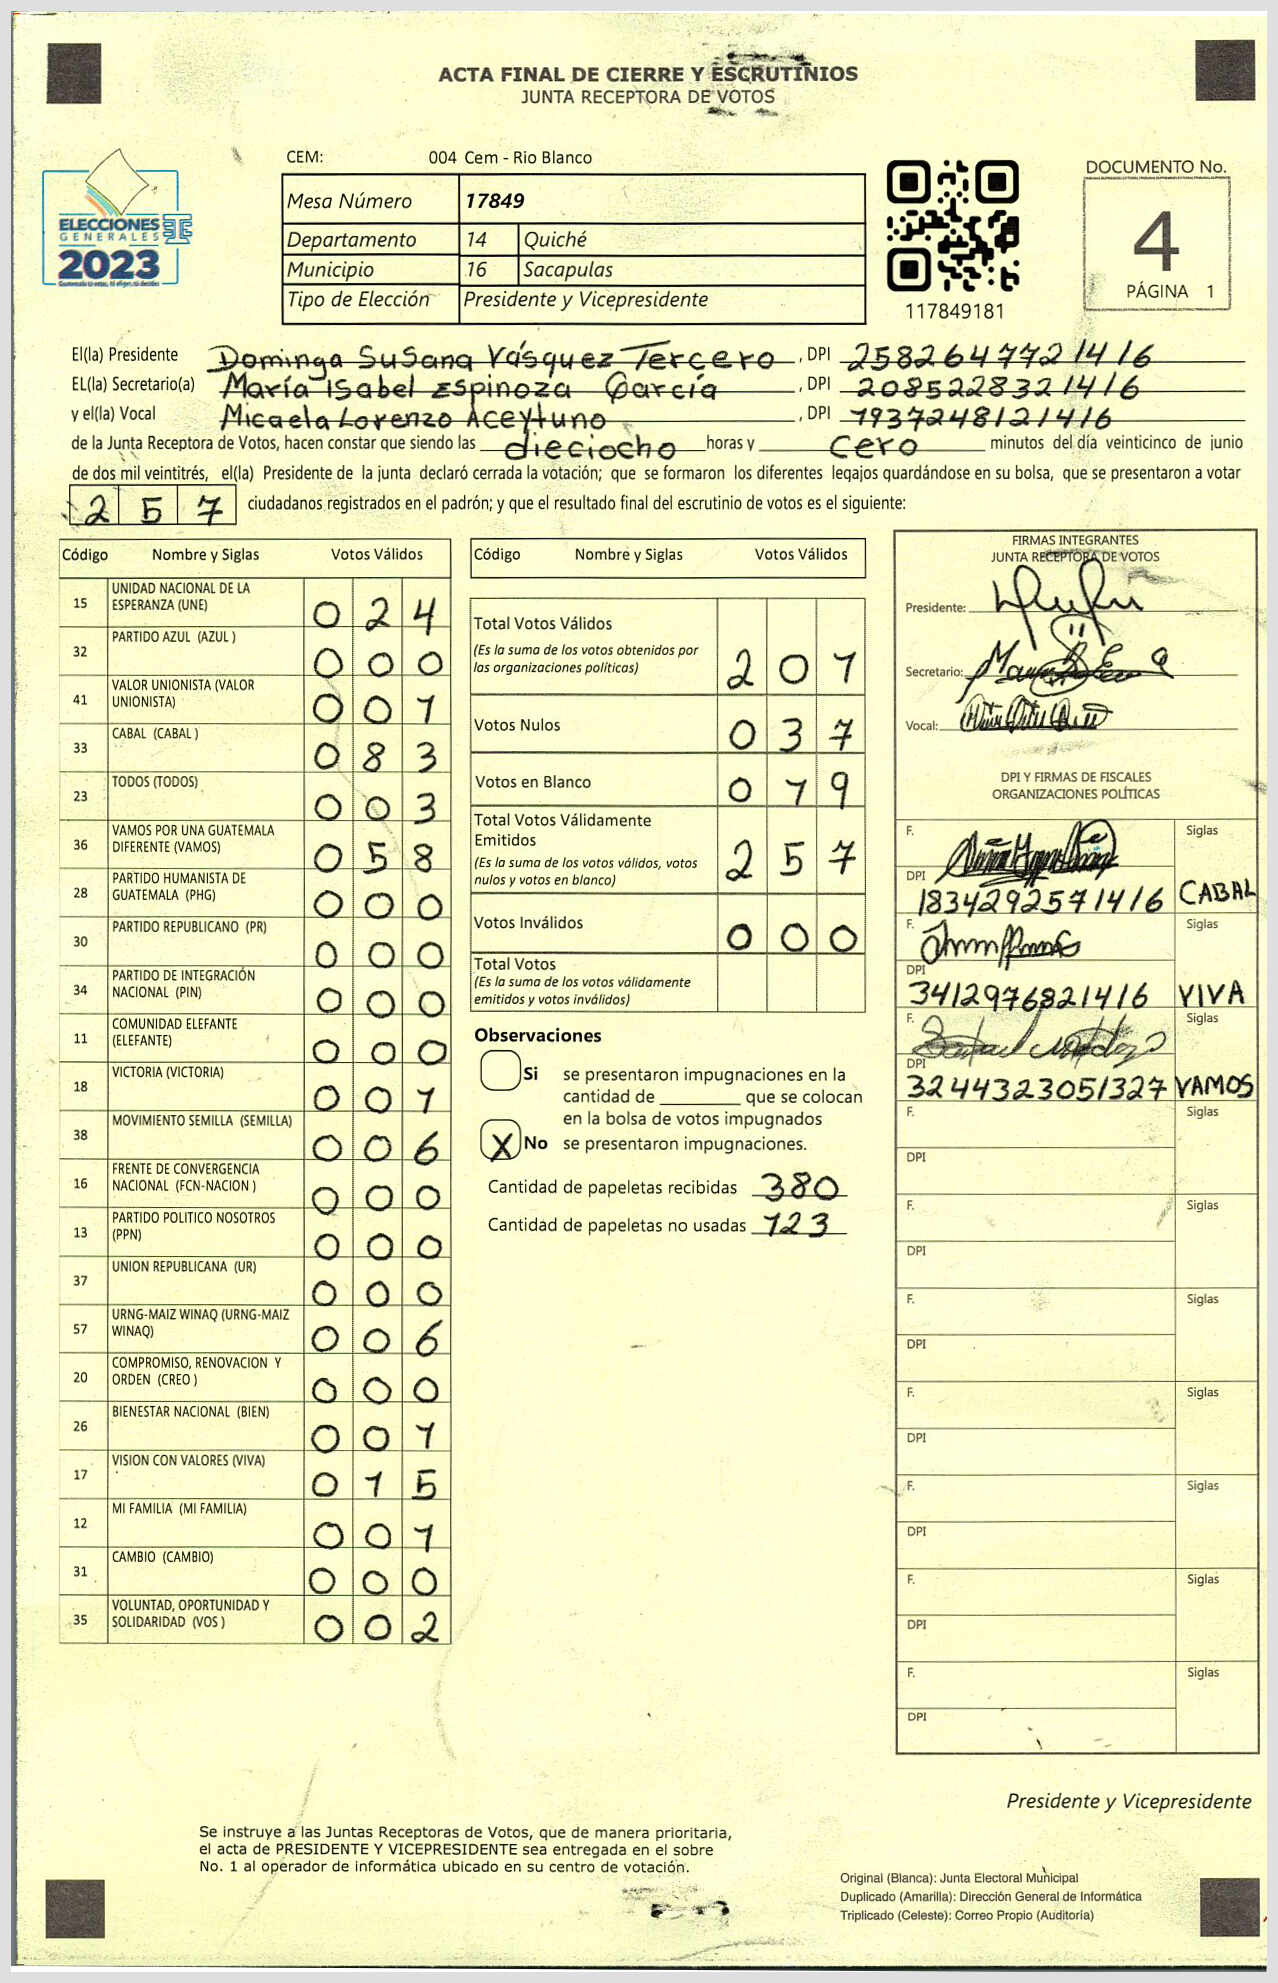 ACTA FINAL DE CIERRE Y ESCRUTINIOS
JUNTA RECEPTORA DE VOTOS
CEM: 004 Cem - Rio Blanco
ELECCIONES
GENERALES
2023
Mesa Número 17849
Departamento 14 Quiché
Municipio 16 Sacapulas
Tipo de Elección Presidente y Vicepresidente
117849181
DOCUMENTO No.
4
PÁGINA 1
El(la) Presidente Dominga Susana Vásquez Tercero, DPI 2582647721416
EL(la) Secretario(a) María Isabel Espinoza García, DPI 2085228321416
y el(la) Vocal Micaela Lorenzo Aceytuno, DPI 1937248121416
de la Junta Receptora de Votos, hacen constar que siendo las dieciocho horas y cero minutos del día veinticinco de junio
de dos mil veintitrés, el(la) Presidente de la junta declaró cerrada la votación; que se formaron los diferentes legajos guardándose en su bolsa, que se presentaron a votar
257 ciudadanos registrados en el padrón; y que el resultado final del escrutinio de votos es el siguiente:
Código Nombre y Siglas Votos Válidos
15 UNIDAD NACIONAL DE LA
ESPERANZA (UNE) 024
32 PARTIDO AZUL (AZUL ) 000
41 VALOR UNIONISTA (VALOR
UNIONISTA) 001
33 CABAL (CABAL ) 083
23 TODOS (TODOS) 003
36 VAMOS POR UNA GUATEMALA
DIFERENTE (VAMOS) 058
28 PARTIDO HUMANISTA DE
GUATEMALA (PHG) 000
30 PARTIDO REPUBLICANO (PR) 000
34 PARTIDO DE INTEGRACIÓN
NACIONAL (PIN) 000
11 COMUNIDAD ELEFANTE
(ELEFANTE) 000
18 VICTORIA (VICTORIA) 001
38 MOVIMIENTO SEMILLA (SEMILLA) 006
16 FRENTE DE CONVERGENCIA
NACIONAL (FCN-NACION ) 000
13 PARTIDO POLITICO NOSOTROS
(PPN) 000
37 UNION REPUBLICANA (UR) 000
57 URNG-MAIZ WINAQ (URNG-MAIZ
WINAQ) 006
20 COMPROMISO, RENOVACION Y
ORDEN (CREO ) 000
26 BIENESTAR NACIONAL (BIEN) 001
17 VISION CON VALORES (VIVA) 015
12 MI FAMILIA (MI FAMILIA) 001
31 CAMBIO (CAMBIO) 000
35 VOLUNTAD, OPORTUNIDAD Y
SOLIDARIDAD (VOS ) 002
Código Nombre y Siglas Votos Válidos
Total Votos Válidos
(Es la suma de los votos obtenidos por
las organizaciones políticas) 201
Votos Nulos 037
Votos en Blanco 019
Total Votos Válidamente
Emitidos
(Es la suma de los votos válidos, votos
nulos y votos en blanco) 257
Votos Inválidos 000
Total Votos
(Es la suma de los votos válidamente
emitidos y votos inválidos)
Observaciones
Si se presentaron impugnaciones en la
cantidad de ________ que se colocan
en la bolsa de votos impugnados
X No se presentaron impugnaciones.
Cantidad de papeletas recibidas 380
Cantidad de papeletas no usadas 123
FIRMAS INTEGRANTES
JUNTA RECEPTORA DE VOTOS
Presidente:
Secretario:
Vocal:
DPI Y FIRMAS DE FISCALES
ORGANIZACIONES POLÍTICAS
F. Siglas
DPI 1834292571416 CABAL
F. Siglas
DPI 3412976821416 VIVA
F. Siglas
DPI 3244323051327 VAMOS
F. Siglas
DPI
F. Siglas
DPI
F. Siglas
DPI
F. Siglas
DPI
F. Siglas
DPI
F. Siglas
DPI
F. Siglas
DPI
Presidente y Vicepresidente
Se instruye a las Juntas Receptoras de Votos, que de manera prioritaria,
el acta de PRESIDENTE Y VICEPRESIDENTE sea entregada en el sobre
No. 1 al operador de informática ubicado en su centro de votación.
Original (Blanca): Junta Electoral Municipal
Duplicado (Amarilla): Dirección General de Informática
Triplicado (Celeste): Correo Propio (Auditoría)